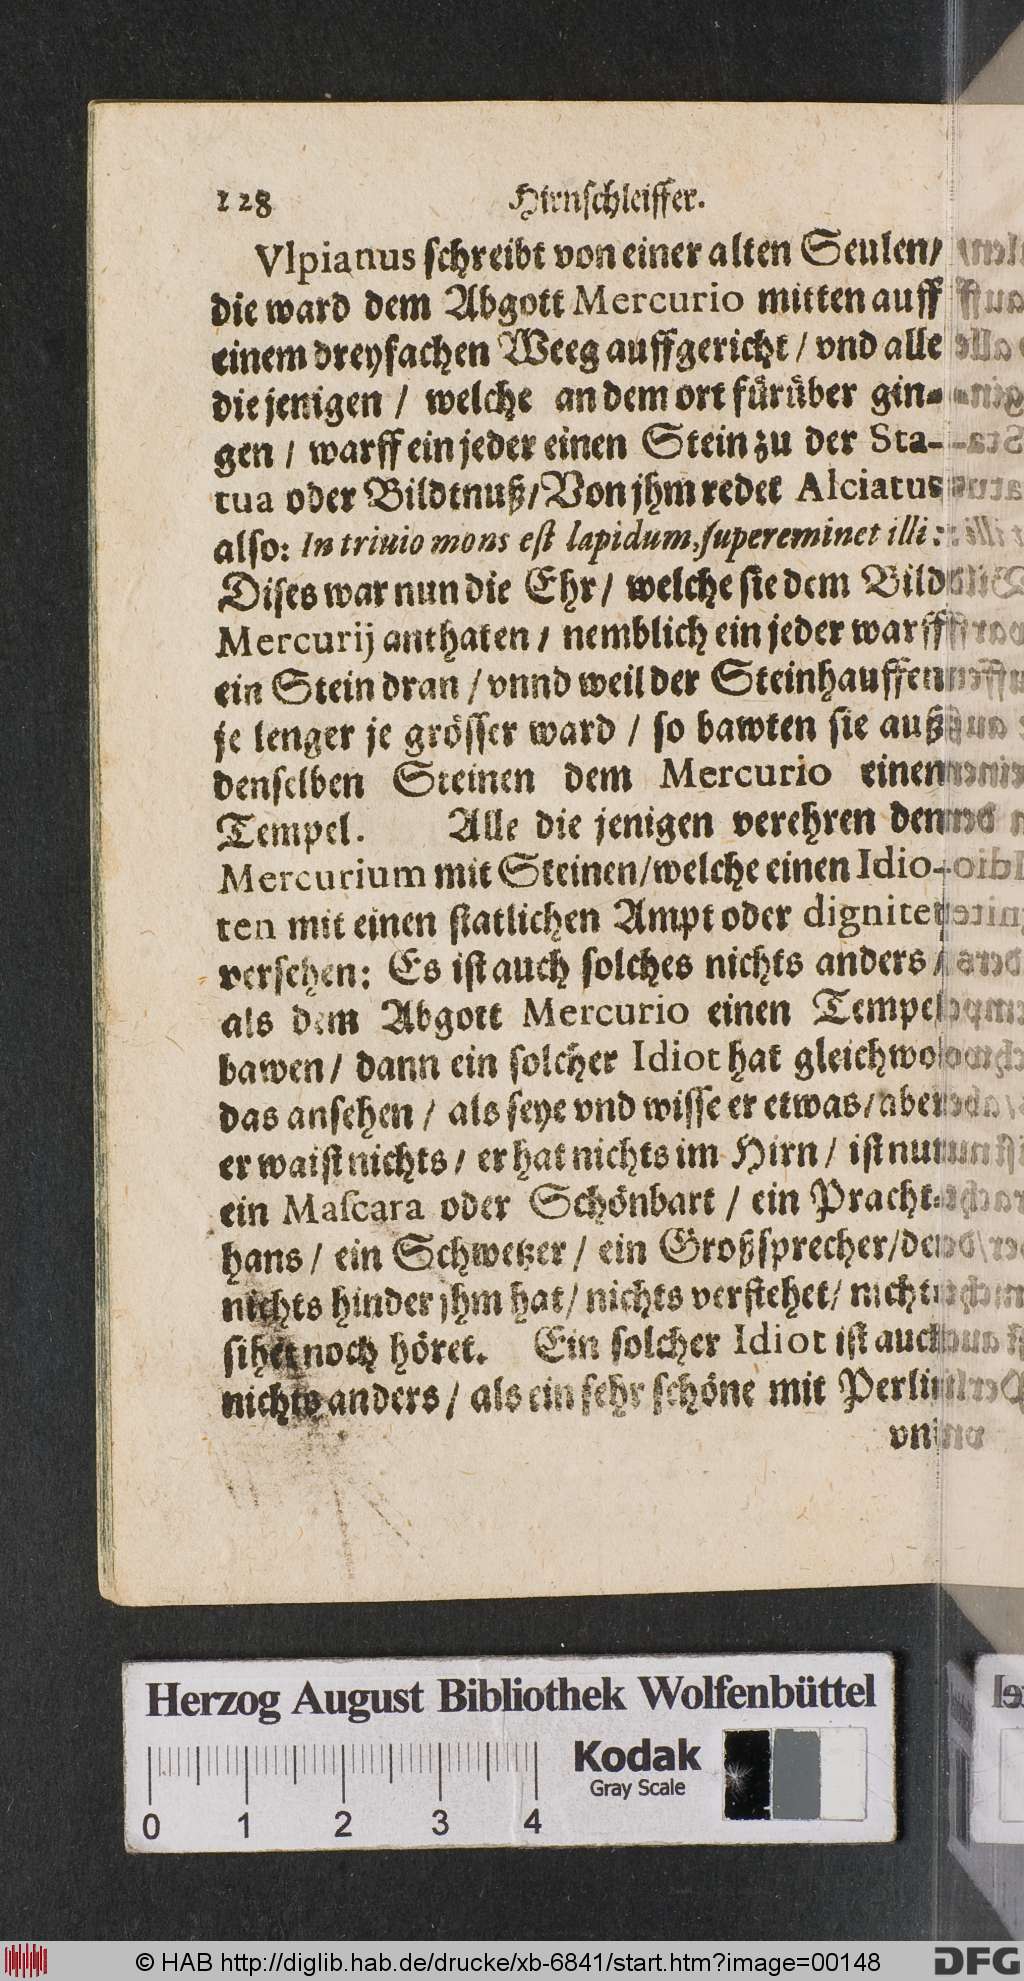 128 Hirnschleiffer.
Vlpianus schreibt von einer alten Seulen/
die ward dem Abgott Mercurio mitten auff
einem dreyfachen Weeg auffgericht / vnd alle
die jenigen / welche an dem ort fürüber gin-
gen / warff ein jeder einen Stein zu der Sta-
tua oder Bildtnuß/ Von jhm redet Alciatus
also: In triuio mons est lapidum, supereminet illi:
Dises war nun die Ehr / welche sie dem Bild
Mercurij anthaten / nemblich ein jeder warff
ein Stein dran / vnnd weil der Steinhauffen
je lenger je grösser ward / so bawten sie auß
denselben Steinen dem Mercurio einen
Tempel. Alle die jenigen verehren den
Mercurium mit Steinen/welche einen Idio-
ten mit einen statlichen Ampt oder dignitet
versehen: Es ist auch solches nichts anders /
als dem Abgott Mercurio einen Tempel
bawen / dann ein solcher Idiot hat gleichwol
das ansehen / als seye vnd wisse er etwas/ aber
er waist nichts / er hat nichts im Hirn / ist nur
ein Mascara oder Schönbart / ein Pracht-
hans / ein Schwetzer / ein Großsprecher/der
nichts hinder jhm hat/ nichts verstehet/ nichts
sihet noch höret. Ein solcher Idiot ist auch
nichts anders / als ein sehr schöne mit Perlin
vn
Herzog August Bibliothek Wolfenbüttel
Kodak
Gray Scale
0 1 2 3 4
© HAB http://diglib.hab.de/drucke/xb-6841/start.htm?image=00148
DFG